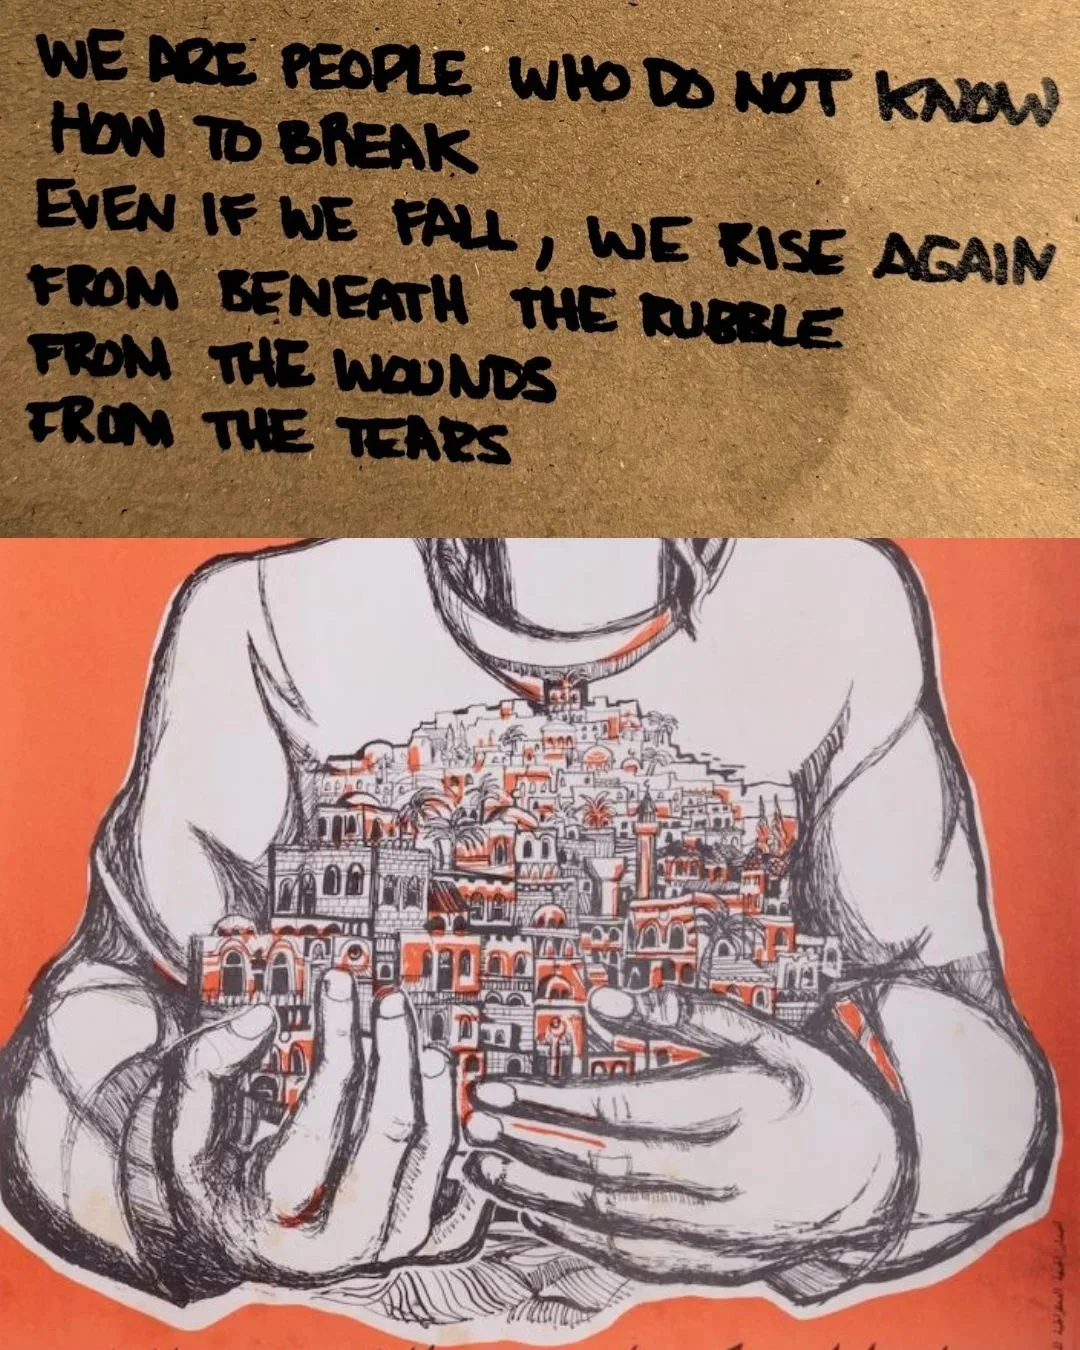 WE ARE PEOPLE WHO DO NOT KNOW
HOW TO BREAK
EVEN IF WE FALL, WE RISE AGAIN
FROM BENEATH THE RUBBLE
FROM THE WOUNDS
FROM THE TEARS